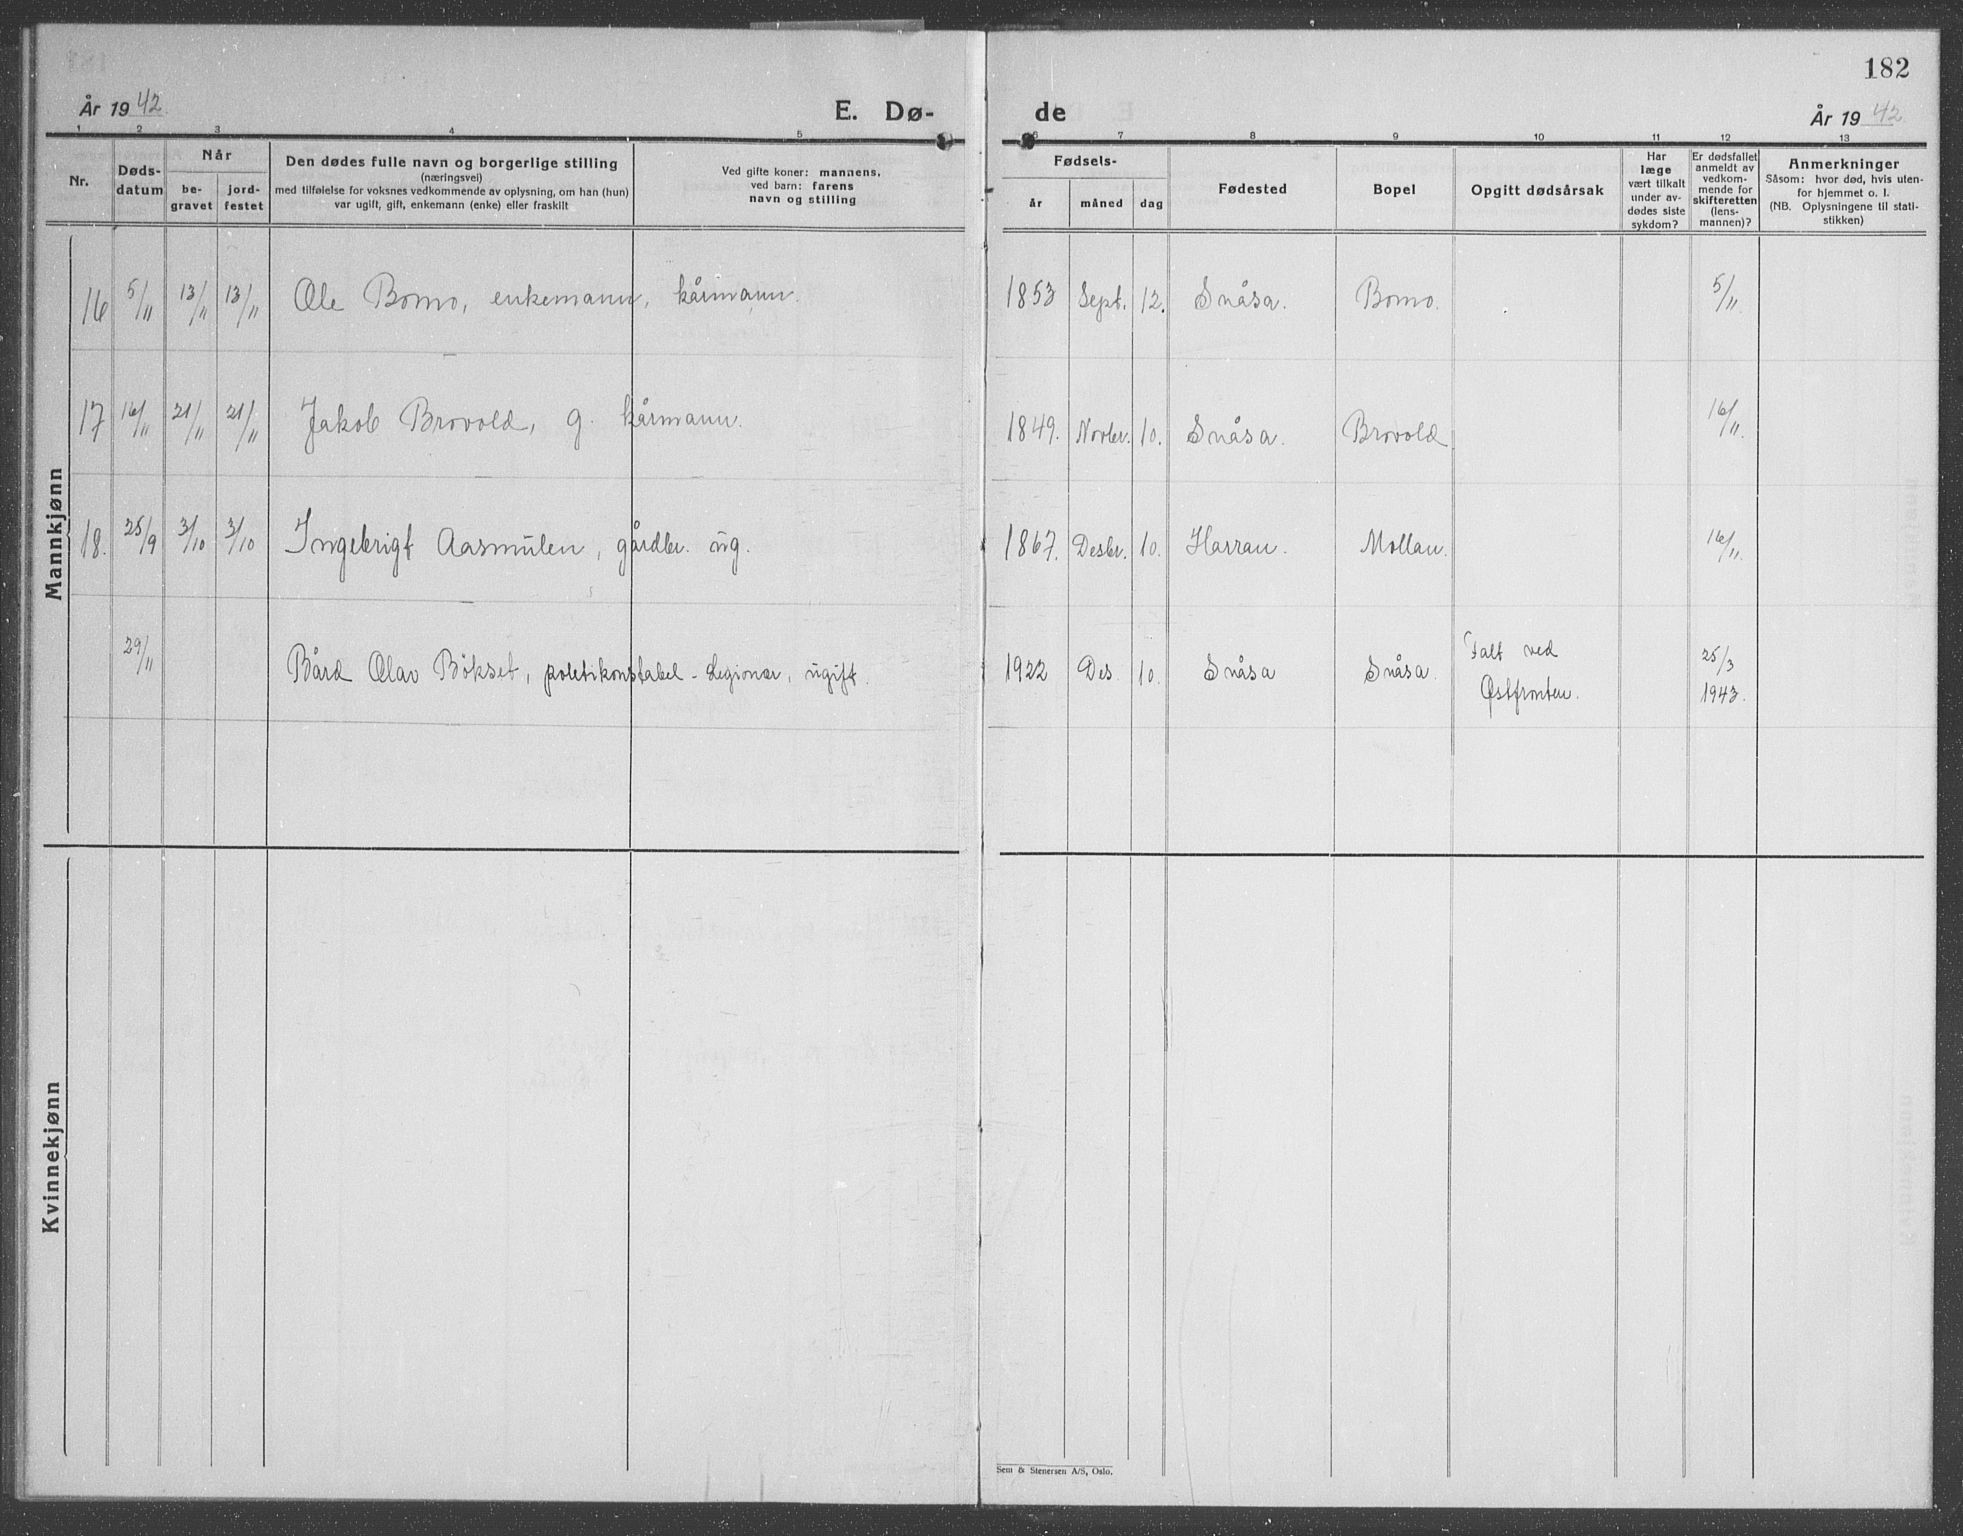 182
År 1942
E. Dø-
de
År 1942
1 2 3 4 5 6 7 8 9 10 11 12 13
Nr.
Døds-
datum
Når
be-
gravet
jord-
festet
Den dødes fulle navn og borgerlige stilling
(næringsvei)
med tilføielse for voksnes vedkommende av oplysning, om han (hun)
var ugift, gift, enkemann (enke) eller fraskilt
Ved gifte koner: mannens,
ved barn: farens
navn og stilling
Fødsels-
år
måned
dag
Fødested
Bopel
Opgitt dødsårsak
Har
læge
vært tilkalt
under av-
dødes siste
sykdom?
Er dødsfallet
anmeldt av
vedkom-
mende for
skifteretten
(lens-
mannen)?
Anmerkninger
Såsom: hvor død, hvis uten-
for hjemmet o. l.
(NB. Oplysningene til stati-
stikken)
Mannkjønn
16 5/11 13/11 13/11 Ole Bomo, enkemann, kårmann. 1853 Sept. 12. Snåsa. Bomo. 5/11
17 16/11 21/11 21/11 Jakob Brovold, g. kårmann. 1849. Novbr. 10. Snåsa. Brovold 16/11.
18. 25/9 3/10 3/10 Ingebrigt Aasmulen, gårdbr. ug. 1867. Desbr. 10. Harran. Mollan. 16/11.
29/11 Bård Olav Bökset, poletikonstabel - Legionær, ugift. 1922 Des. 10. Snåsa Snåsa. Falt ved
Østfronten. 25/3
1943.
Kvinnekjønn
Sem & Stenersen A/S, Oslo.